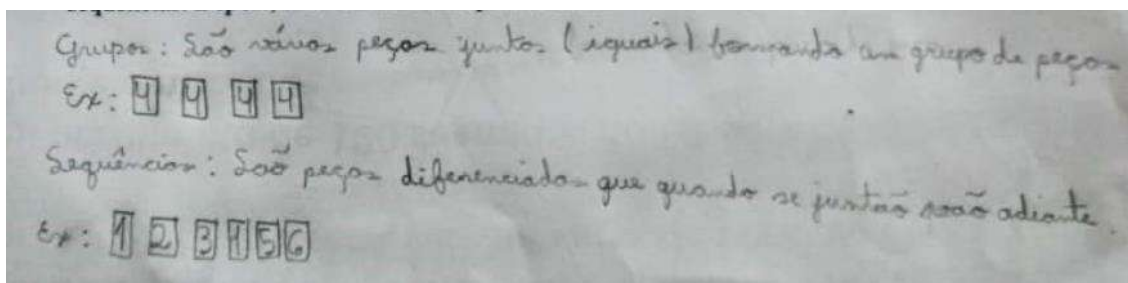 Grupos: São várias peças juntas (iguais) formando um grupo de peças
Ex: 4 4 4 4
Sequências: São peças diferenciadas que quando se juntão vão adiante.
Ex: 1 2 3 4 5 6